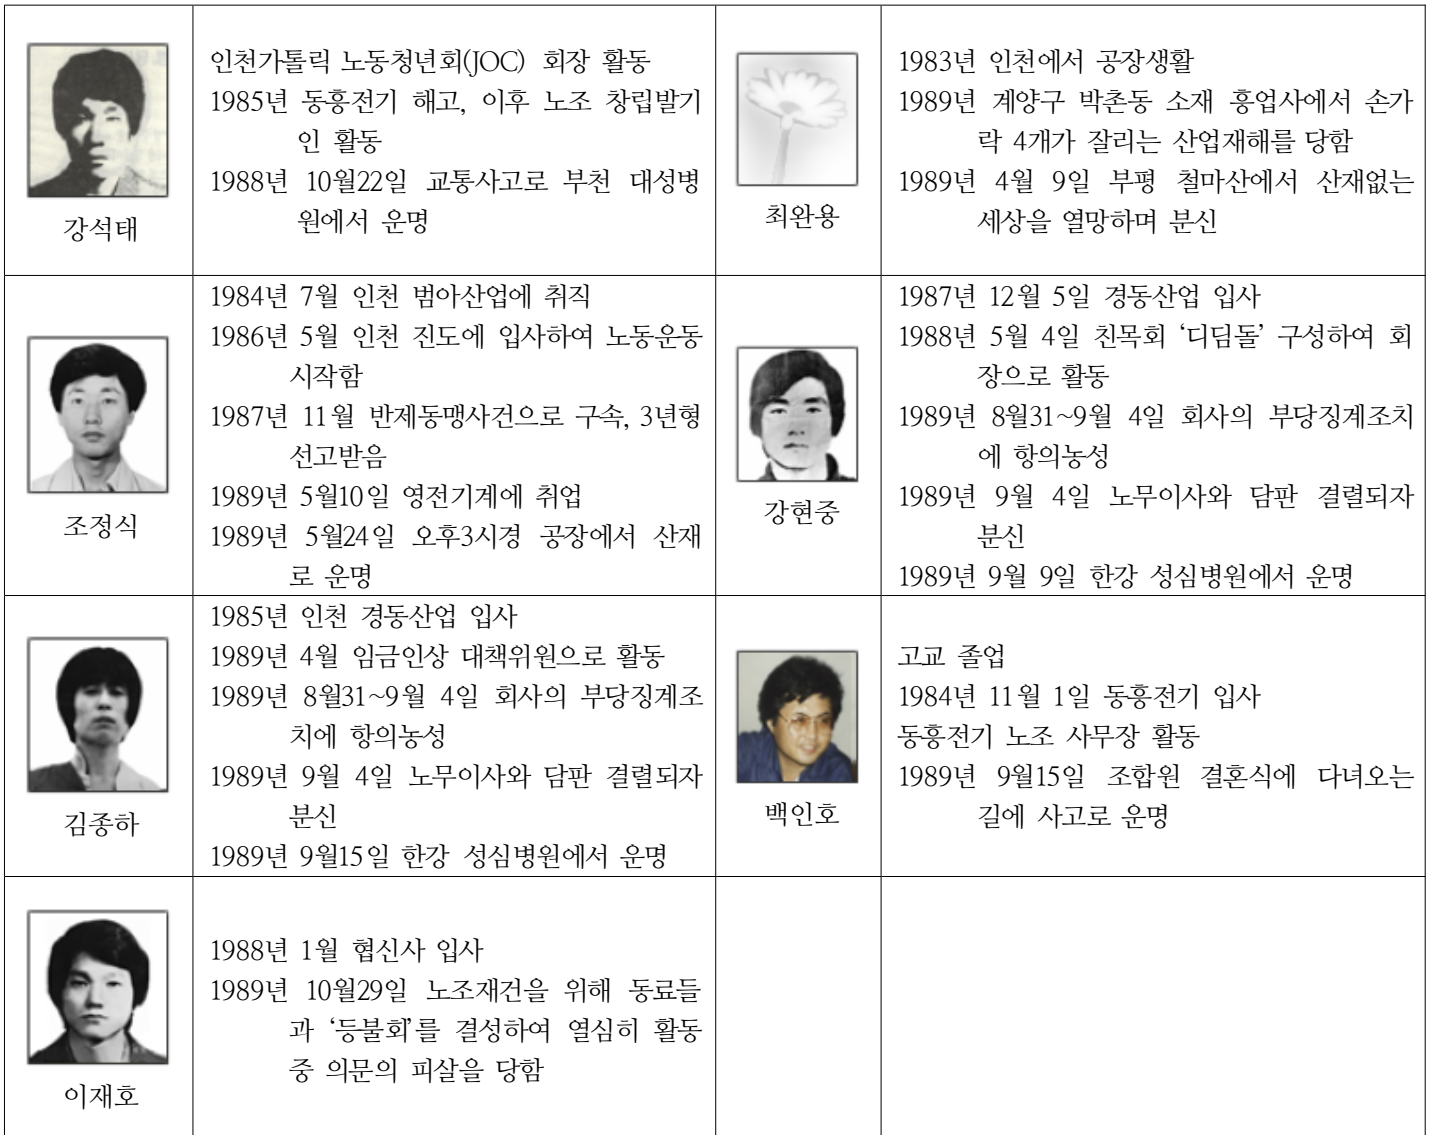 강석태
인천가톨릭 노동청년회(JOC) 회장 활동
1985년 동흥전기 해고, 이후 노조 창립발기
인 활동
1988년 10월22일 교통사고로 부천 대성병
원에서 운명
최완용
1983년 인천에서 공장생활
1989년 계양구 박촌동 소재 흥업사에서 손가
락 4개가 잘리는 산업재해를 당함
1989년 4월 9일 부평 철마산에서 산재없는
세상을 열망하며 분신
조정식
1984년 7월 인천 범아산업에 취직
1986년 5월 인천 진도에 입사하여 노동운동
시작함
1987년 11월 반제동맹사건으로 구속, 3년형
선고받음
1989년 5월10일 영전기계에 취업
1989년 5월24일 오후3시경 공장에서 산재
로 운명
강현중
1987년 12월 5일 경동산업 입사
1988년 5월 4일 친목회 ‘디딤돌’ 구성하여 회
장으로 활동
1989년 8월31~9월 4일 회사의 부당징계조치
에 항의농성
1989년 9월 4일 노무이사와 담판 결렬되자
분신
1989년 9월 9일 한강 성심병원에서 운명
김종하
1985년 인천 경동산업 입사
1989년 4월 임금인상 대책위원으로 활동
1989년 8월31~9월 4일 회사의 부당징계조
치에 항의농성
1989년 9월 4일 노무이사와 담판 결렬되자
분신
1989년 9월15일 한강 성심병원에서 운명
백인호
고교 졸업
1984년 11월 1일 동흥전기 입사
동흥전기 노조 사무장 활동
1989년 9월15일 조합원 결혼식에 다녀오는
길에 사고로 운명
이재호
1988년 1월 협신사 입사
1989년 10월29일 노조재건을 위해 동료들
과 ‘등불회’를 결성하여 열심히 활동
중 의문의 피살을 당함